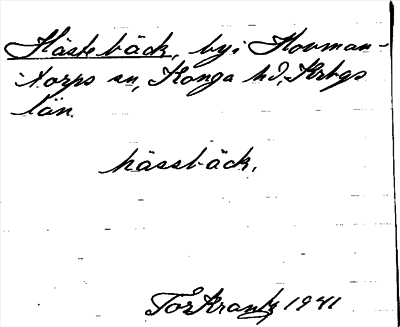 Hästebäck, by i Hovman-
torps sn, Konga hd, Krbgs
län.
hässbäck.
Tor Krantz 1941